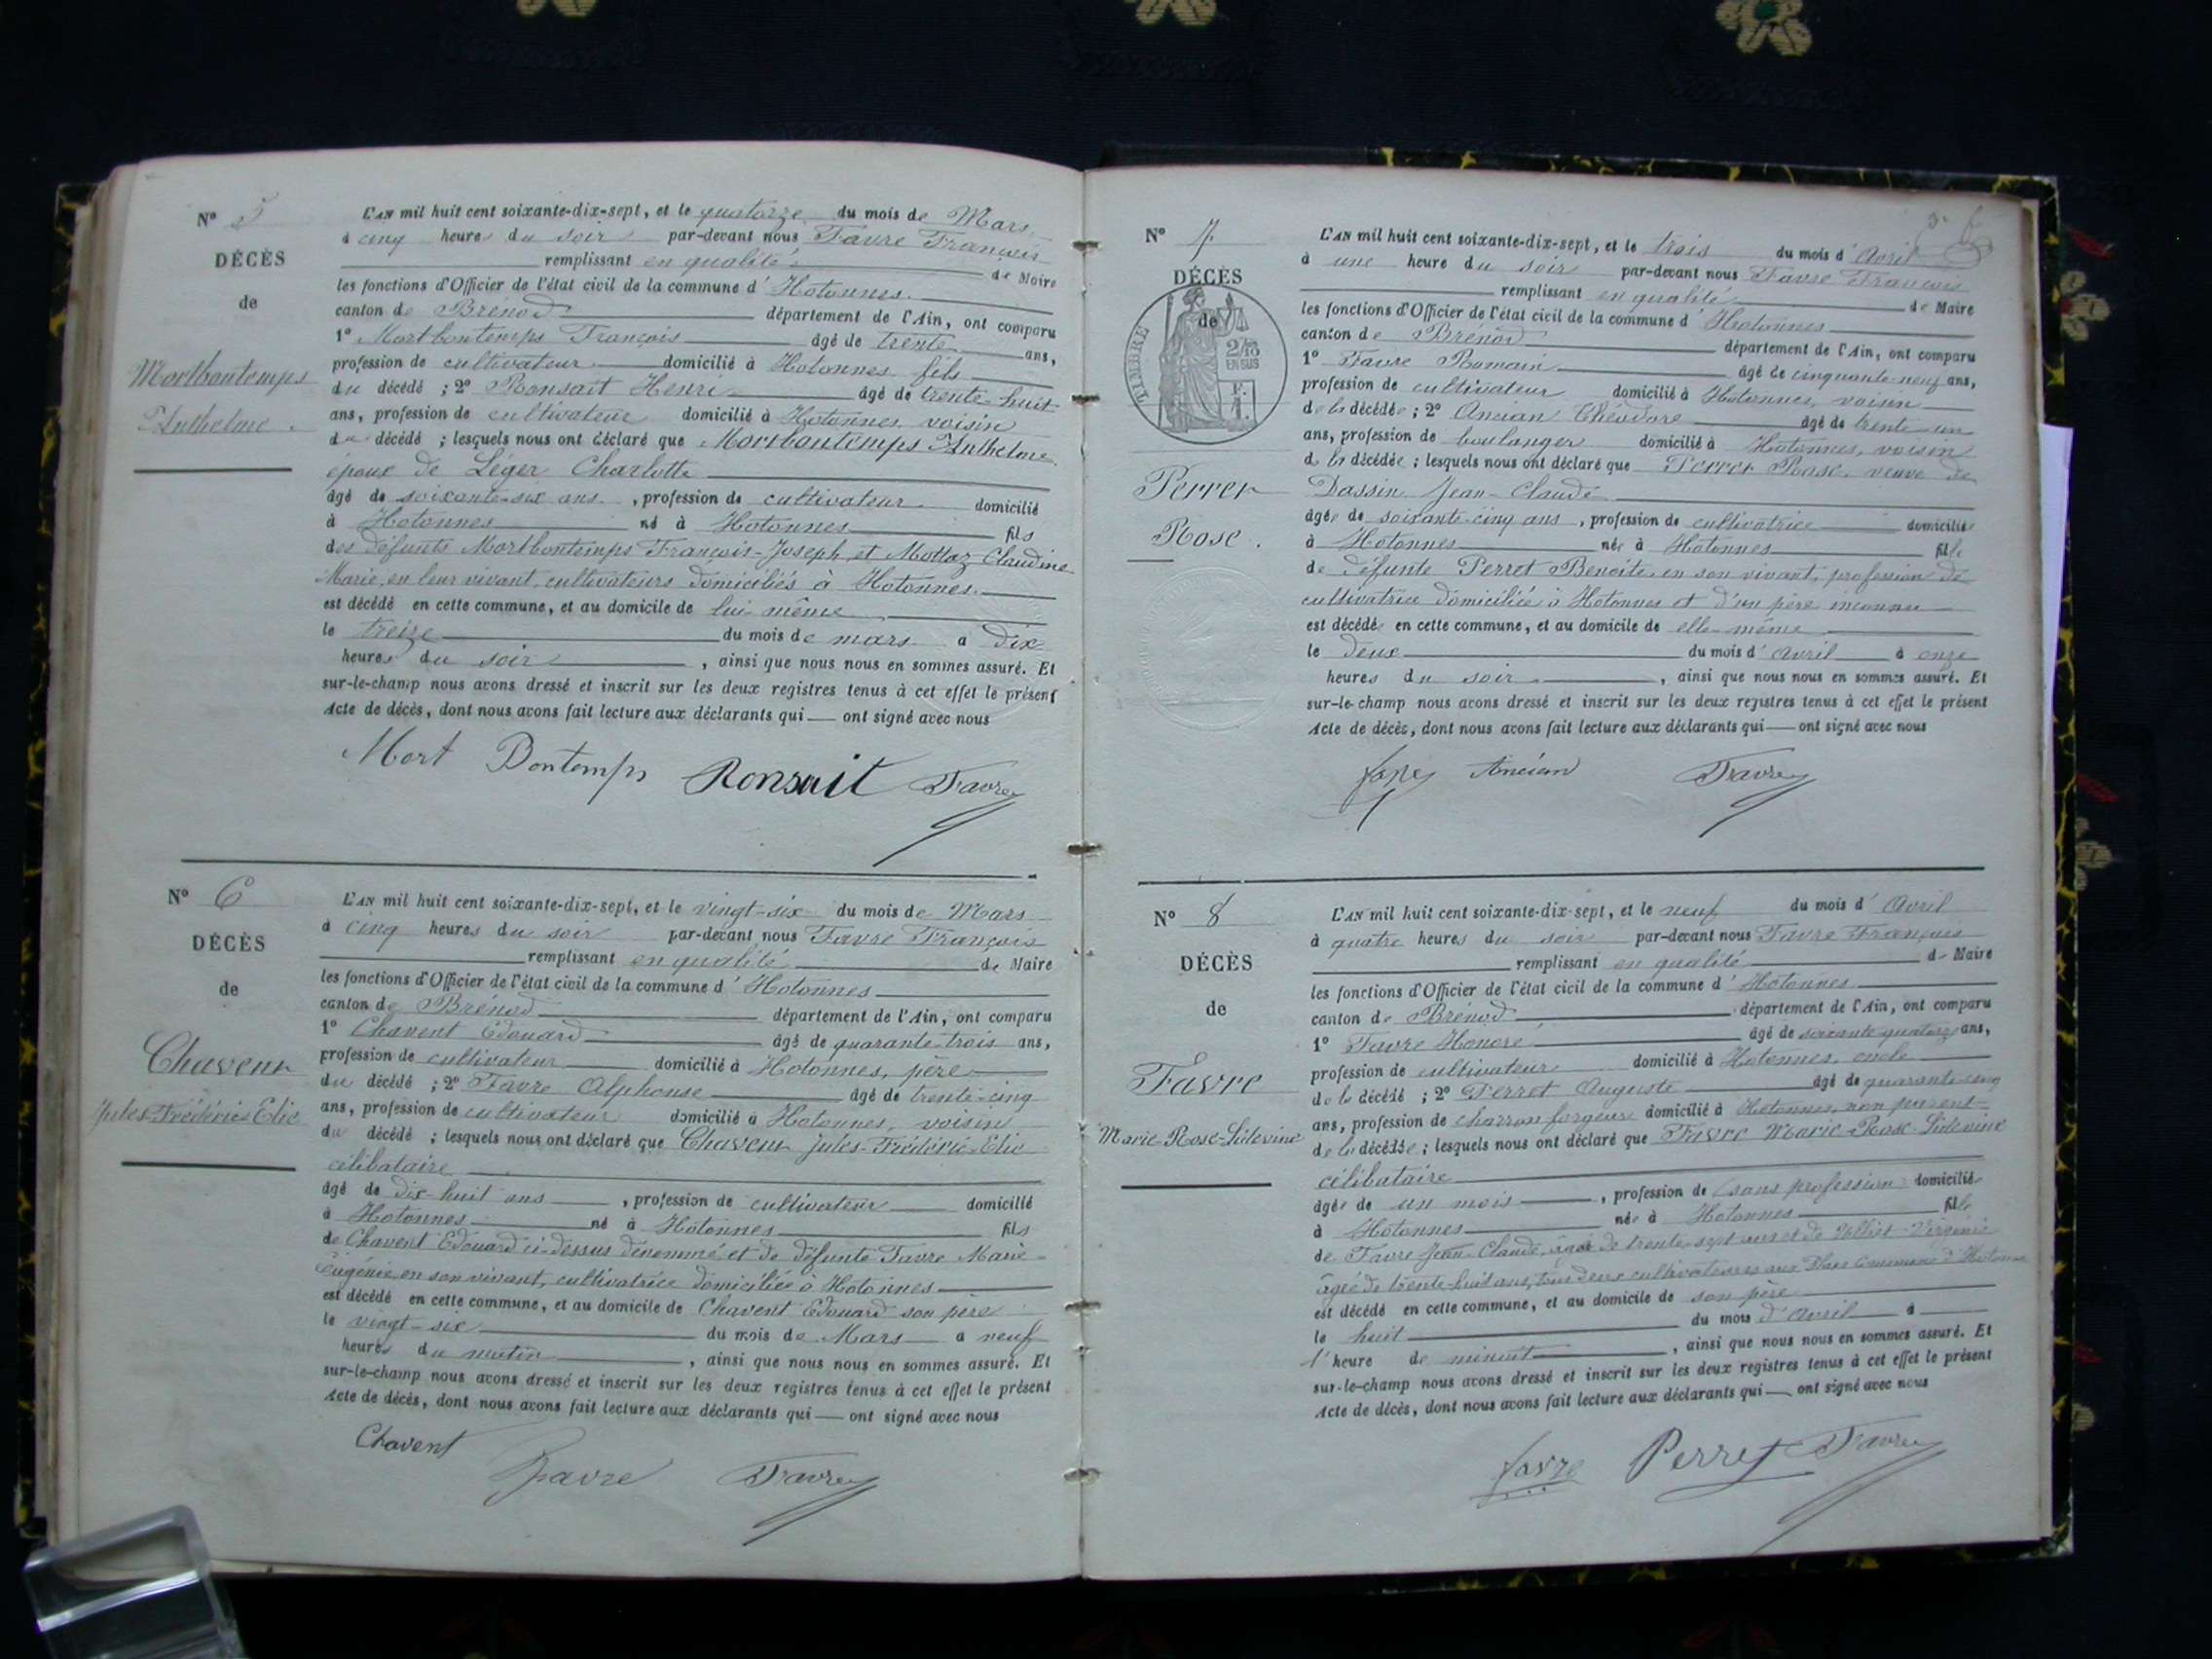 Nº 5
DÉCÈS
de
Mortbontemps
Anthelme.
L'AN mil huit cent soixante-dix-sept, et le quatorze du mois de Mars
à cinq heures du soir par-devant nous Favre François
remplissant en qualité de Maire
les fonctions d'Officier de l'état civil de la commune d'Hotonnes.
canton de Brénod département de l'Ain, ont comparu
1º Mortbontemps François âgé de trente ans,
profession de cultivateur domicilié à Hotonnes fils
du décédé ; 2º Ronsait Henri âgé de trente-huit
ans, profession de cultivateur domicilié à Hotonnes voisin
du décédé ; lesquels nous ont déclaré que Mortbontemps Anthelme.
époux de Léger Charlotte
âgé de soixante-six ans, profession de cultivateur domicilié
à Hotonnes né à Hotonnes fils
des défunts Mortbontemps François-Joseph et Mottaz Claudine
Marie, en leur vivant, cultivateurs domiciliés à Hotonnes.
est décédé en cette commune, et au domicile de lui même
le treize du mois de mars a dix
heures du soir, ainsi que nous nous en sommes assuré. Et
sur-le-champ nous avons dressé et inscrit sur les deux registres tenus à cet effet le présent
Acte de décès, dont nous avons fait lecture aux déclarants qui — ont signé avec nous
Mort Bontemps Ronsait Favre
Nº 6
DÉCÈS
de
Chavent
Jules-Frédéric-Elie
L'AN mil huit cent soixante-dix-sept, et le vingt-six du mois de Mars
à cinq heures du soir par-devant nous Favre François
remplissant en qualité de Maire
les fonctions d'Officier de l'état civil de la commune d'Hotonnes
canton de Brénod département de l'Ain, ont comparu
1º Chavent Edouard âgé de quarante-trois ans,
profession de cultivateur domicilié à Hotonnes, père
du décédé ; 2º Favre Alphonse âgé de trente-cinq
ans, profession de cultivateur domicilié à Hotonnes, voisin
du décédé ; lesquels nous ont déclaré que Chavent Jules-Frédéric-Elie
célibataire
âgé de dix-huit ans, profession de cultivateur domicilié
à Hotonnes né à Hotonnes fils
de Chavent Edouard ci-dessus dénommé et de défunte Favre Marie-
Eugénie, en son vivant, cultivatrice domiciliée à Hotonnes
est décédé en cette commune, et au domicile de Chavent Edouard son père
le vingt-six du mois de Mars a neuf
heures du matin, ainsi que nous nous en sommes assuré. Et
sur-le-champ nous avons dressé et inscrit sur les deux registres tenus à cet effet le présent
Acte de décès, dont nous avons fait lecture aux déclarants qui — ont signé avec nous
Chavent
Favre Favre
Nº 7
DÉCÈS
de
TIMBRE
2/10
EN SUS
Perret
Rose.
L'AN mil huit cent soixante-dix-sept, et le trois du mois d'Avril
à une heure du soir par-devant nous Favre François
remplissant en qualité de Maire
les fonctions d'Officier de l'état civil de la commune d'Hotonnes
canton de Brénod département de l'Ain, ont comparu
1º Favre Romain âgé de cinquante-neuf ans,
profession de cultivateur domicilié à Hotonnes, voisin
de la décédée ; 2º Ancian Théodore âgé de trente-un
ans, profession de boulanger domicilié à Hotonnes, voisin
de la décédée ; lesquels nous ont déclaré que Perret Rose, veuve de
Dassin Jean-Claude
âgée de soixante-cinq ans, profession de cultivatrice domiciliée
à Hotonnes née à Hotonnes fille
de défunte Perret Benoîte, en son vivant, profession de
cultivatrice domiciliée à Hotonnes et d'un père inconnu
est décédée en cette commune, et au domicile de elle-même
le deux du mois d'avril à onze
heures du soir, ainsi que nous nous en sommes assuré. Et
sur-le-champ nous avons dressé et inscrit sur les deux registres tenus à cet effet le présent
Acte de décès, dont nous avons fait lecture aux déclarants qui — ont signé avec nous
Ancian Favre
Nº 8
DÉCÈS
de
Favre
Marie-Rose
L'AN mil huit cent soixante-dix-sept, et le neuf du mois d'Avril
à quatre heures du soir par-devant nous Favre François
remplissant en qualité de Maire
les fonctions d'Officier de l'état civil de la commune d'Hotonnes
canton de Brénod département de l'Ain, ont comparu
1º Favre Honoré âgé de soixante-quatorze ans,
profession de cultivateur domicilié à Hotonnes, oncle
de la décédée ; 2º Perret Auguste âgé de quarante-cinq
ans, profession de charron forgeur domicilié à Hotonnes, non parent
de la décédée ; lesquels nous ont déclaré que Favre Marie-Rose
célibataire
âgée de un mois, profession de (sans profession) domiciliée
à Hotonnes née à Hotonnes fille
de Favre Jean-Claude, âgé de trente-sept ans et de Virginie
âgée de trente-huit ans, tous deux cultivateurs aux Plans Commune d'Hotonnes
est décédé en cette commune, et au domicile de son père
le huit du mois d'avril à
l'heure de minuit, ainsi que nous nous en sommes assuré. Et
sur-le-champ nous avons dressé et inscrit sur les deux registres tenus à cet effet le présent
Acte de décès, dont nous avons fait lecture aux déclarants qui — ont signé avec nous
favre Perret Favre